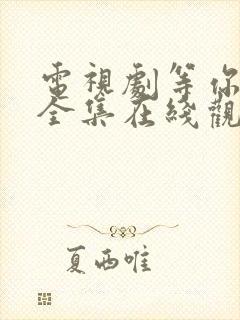 電視劇等你
全集在綫觀
夏西唯